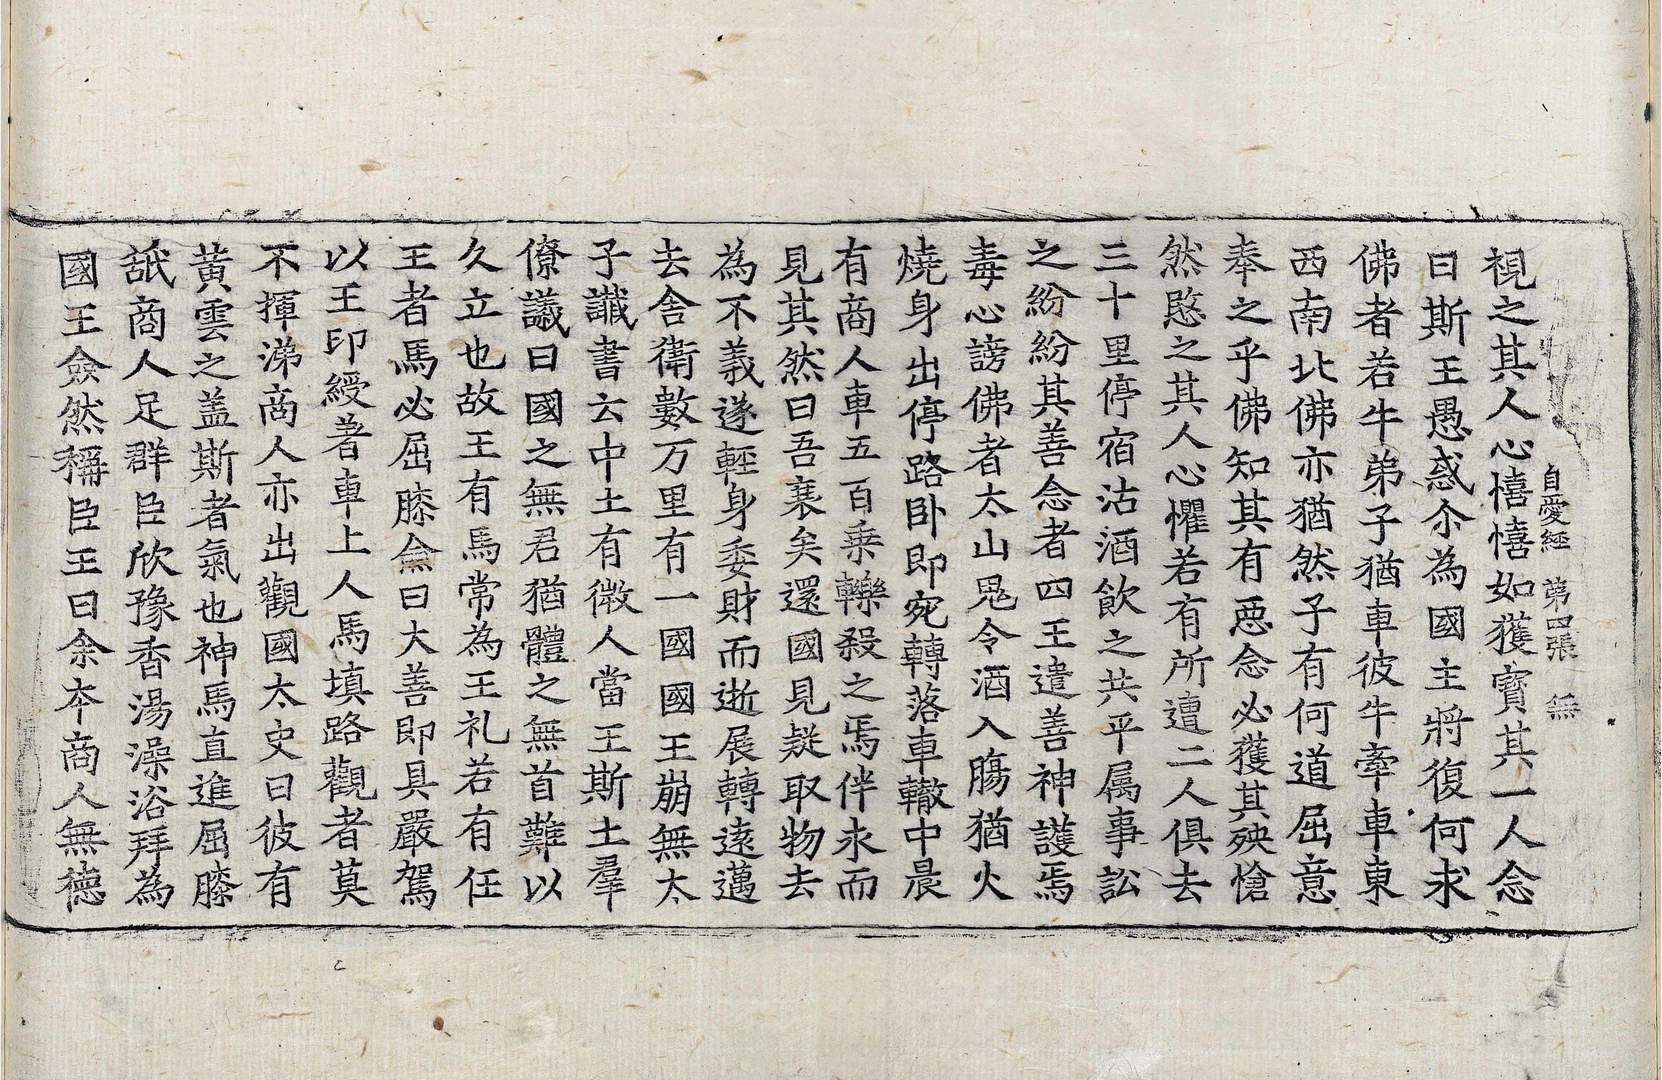 自愛經 第四張 無
視之其人心憘憘如獲寶其一人念
曰斯王愚惑尒為國主將復何求
佛者若牛弟子猶車彼牛牽車東
西南北佛亦猶然子有何道屈意
奉之乎佛知其有惡念必獲其殃愴
然愍之其人心懼若有所遭二人俱去
三十里停宿沽酒飲之共平属事訟
之紛紛其善念者四王遣善神護焉
毒心謗佛者太山鬼令酒入膓猶火
燒身出停路卧即宛轉落車轍中晨
有商人車五百乘轢殺之焉伴求而
見其然曰吾衰矣還國見疑取物去
為不義遂輕身委財而逝展轉遠邁
去舍衛數万里有一國國王崩無太
子讖書云中土有微人當王斯土羣
僚議曰國之無君猶體之無首難以
久立也故王有馬常為王礼若有任
王者馬必屈膝僉曰大善即具嚴駕
以王印綬著車上人馬填路觀者莫
不揮涕商人亦出觀國太史曰彼有
黄雲之盖斯者氣也神馬直進屈膝
舐商人足群臣欣豫香湯澡浴拜為
國王僉然稱臣王曰余本商人無德